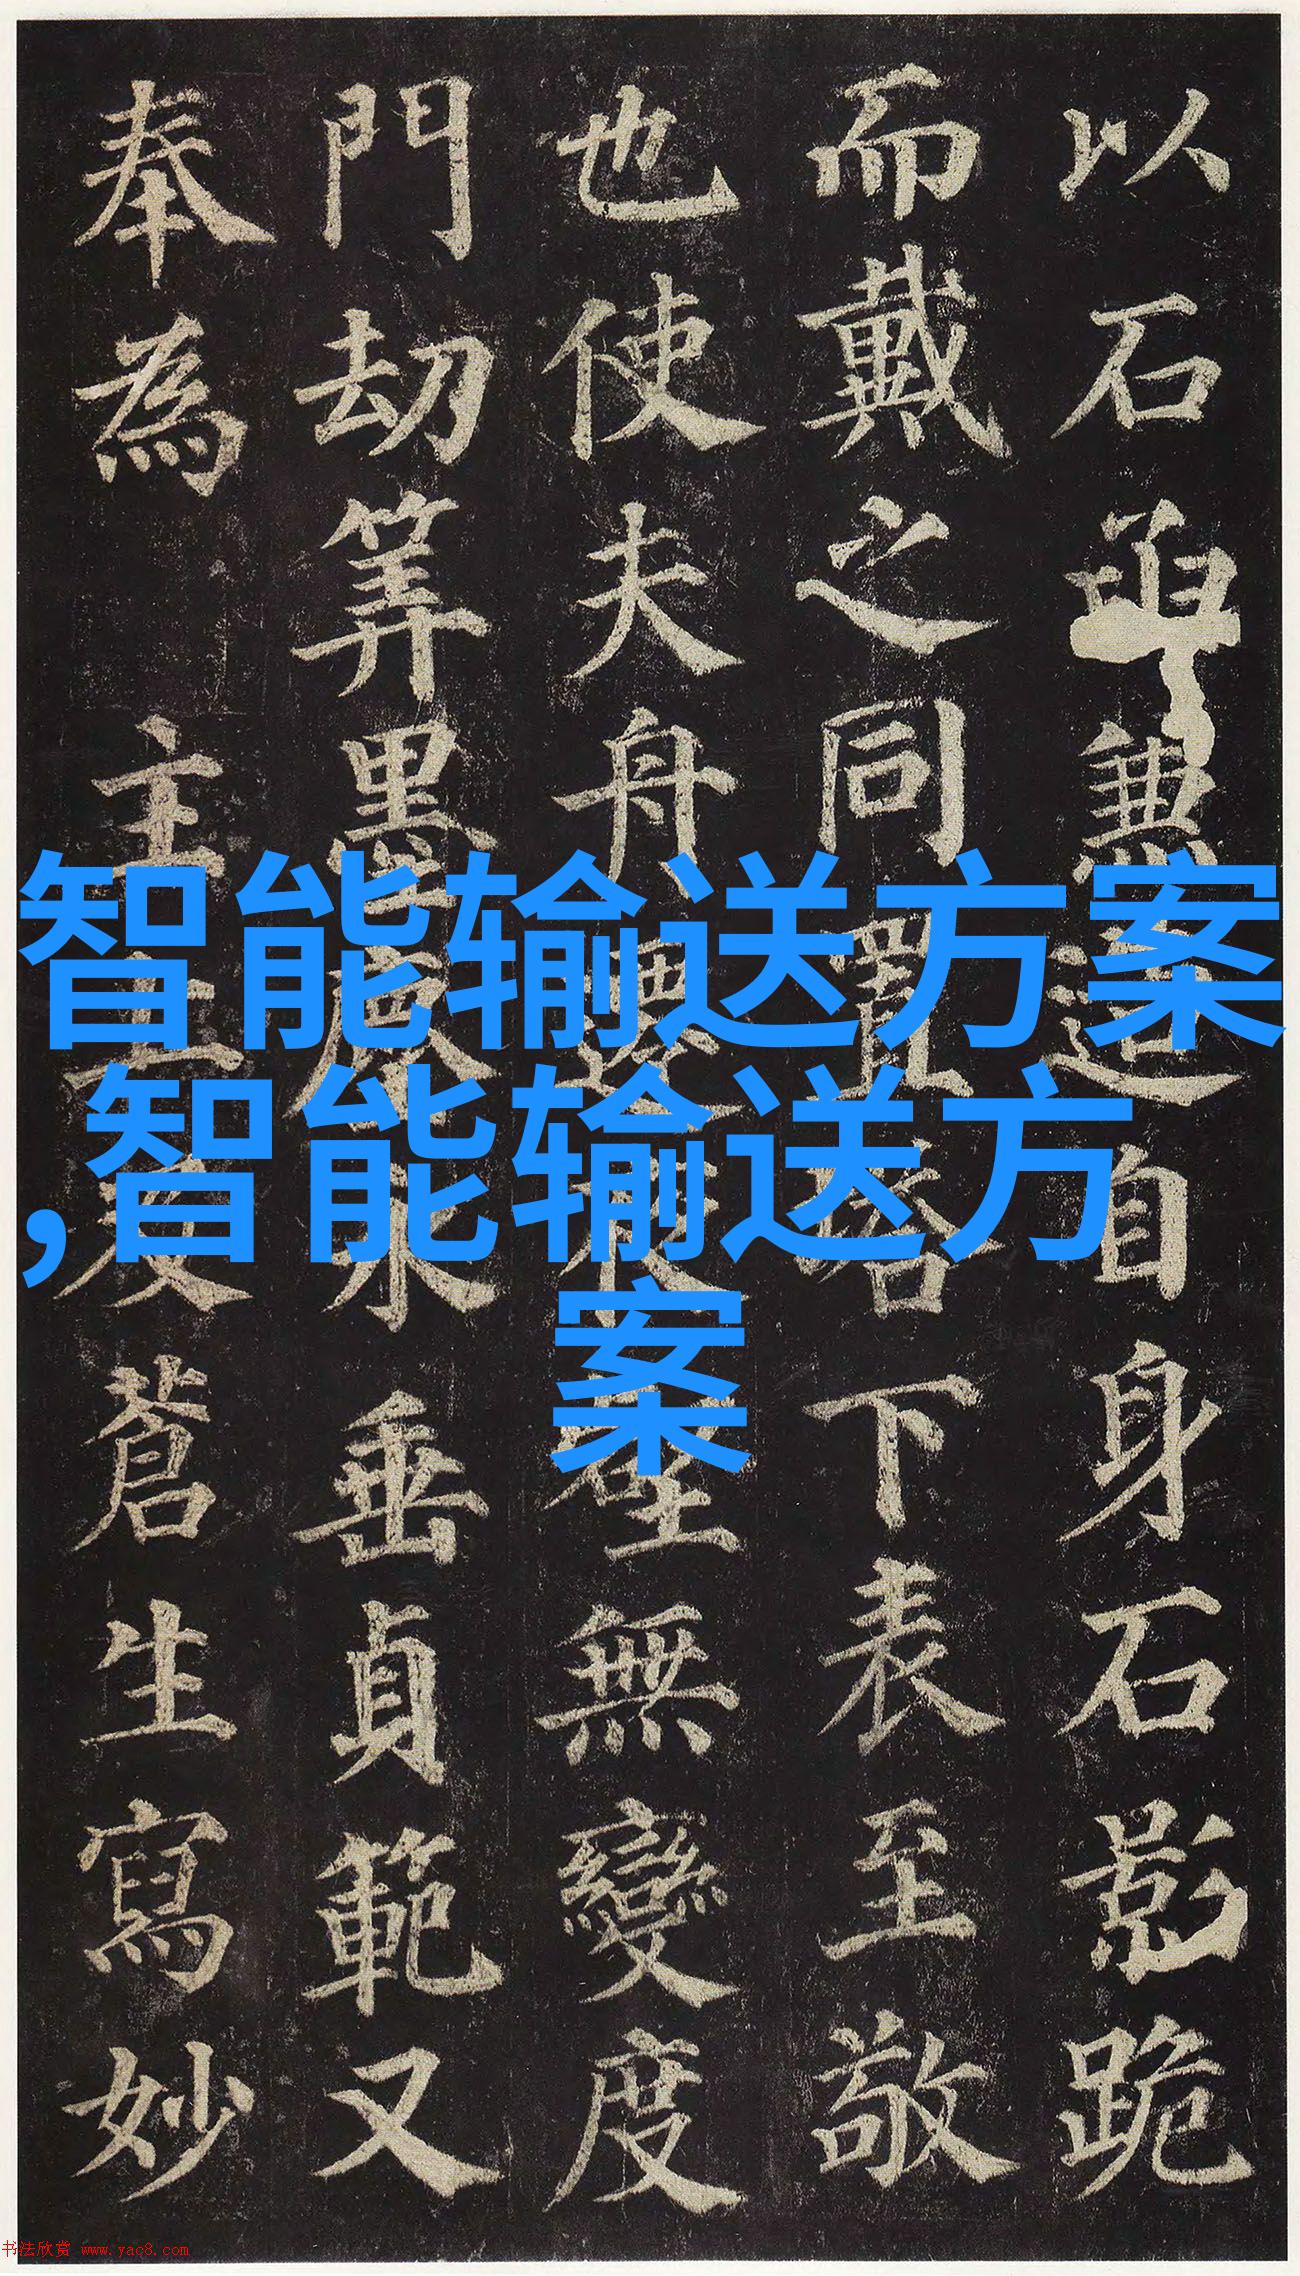 以石函兼造自身石影跪
而戴之同置塔下表至敬
也使夫舟遷夜壑無變度
門劫筭墨塵永垂貞範又
奉為 主上及蒼生寫妙
智能输送方案
,智能输送方
案
书法欣赏 www.yac8.com